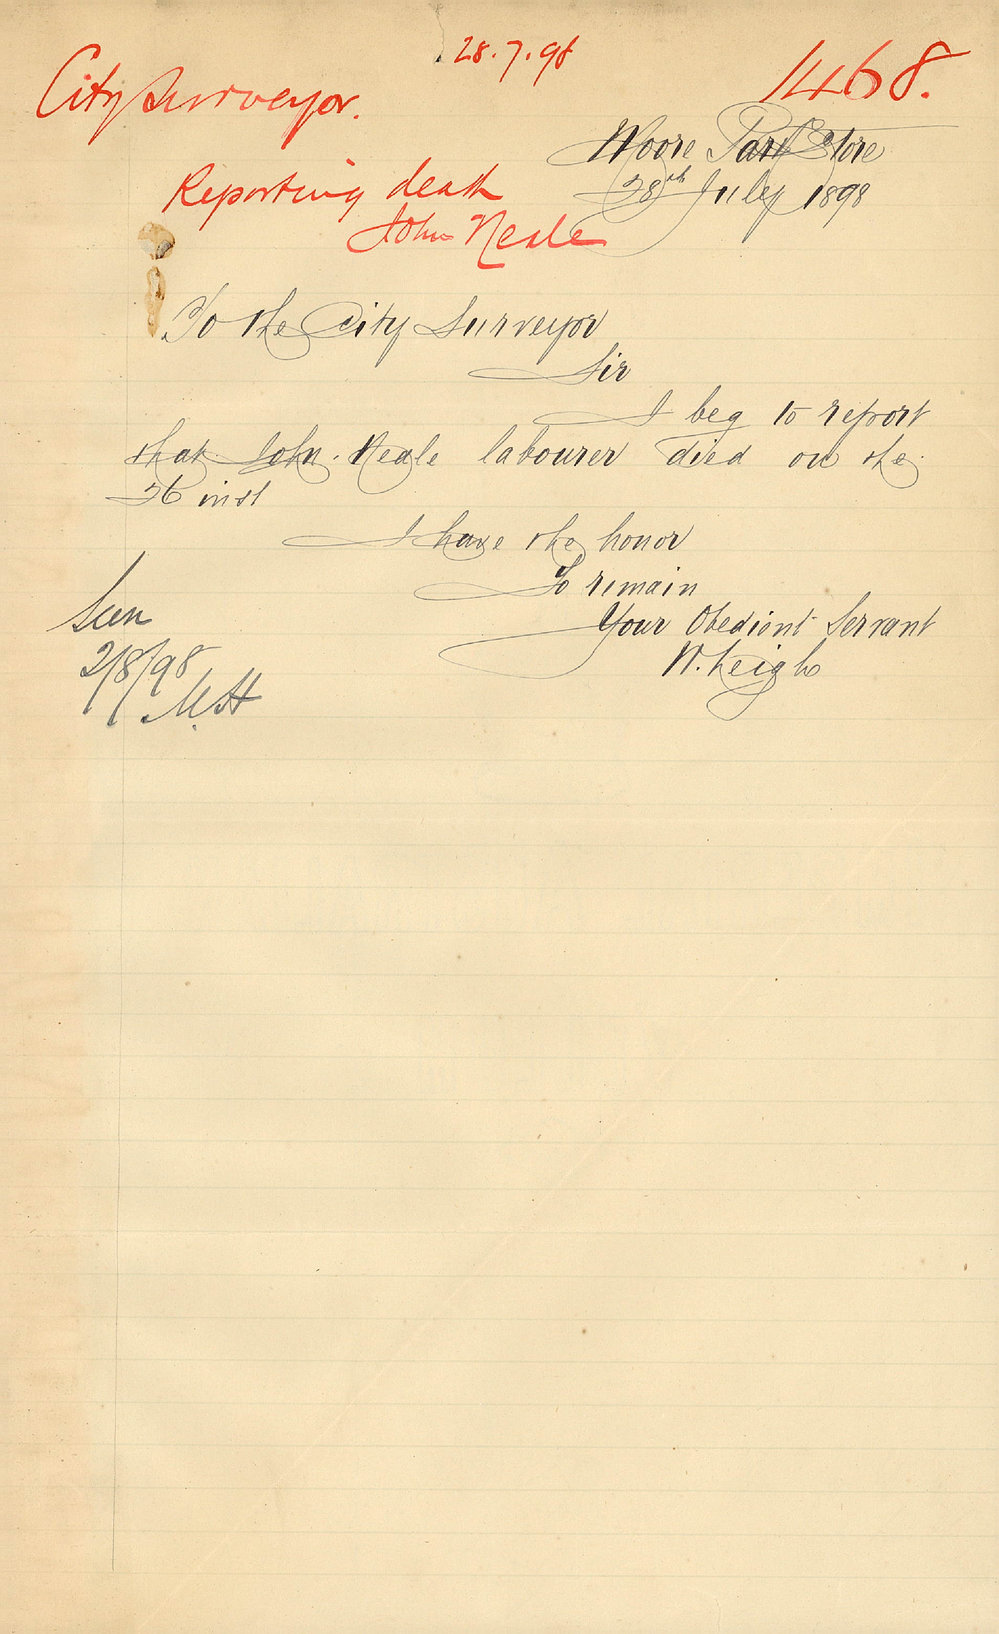 28.7.98
City Surveyor.
1468.
Moore Park Store
28th July 1898
Reporting death
John Neale
To the City Surveyor
Sir
I beg to report
that John Neale labourer died on the
26 inst
I have the honor
To remain
Your Obedient Servant
W. Leigh
Seen
2/8/98